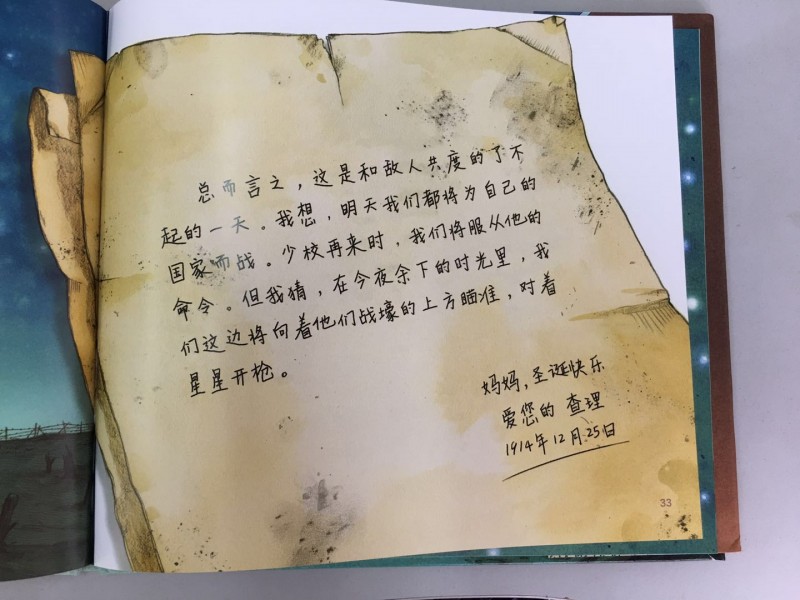 总而言之，这是和敌人共度的了不
起的一天。我想，明天我们都将为自己的
国家而战。少校再来时，我们将服从他的
命令。但我猜，在今夜余下的时光里，我
们这边将向着他们战壕的上方瞄准，对着
星星开枪。
妈妈，圣诞快乐
爱您的 查理
1914年12月25日
33